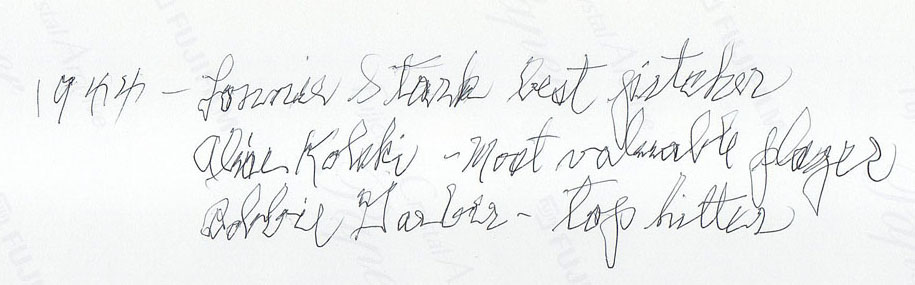 1944 - Lonnie Stark best pitcher
Kolski - Most valuable player
Bobbie - top hitter